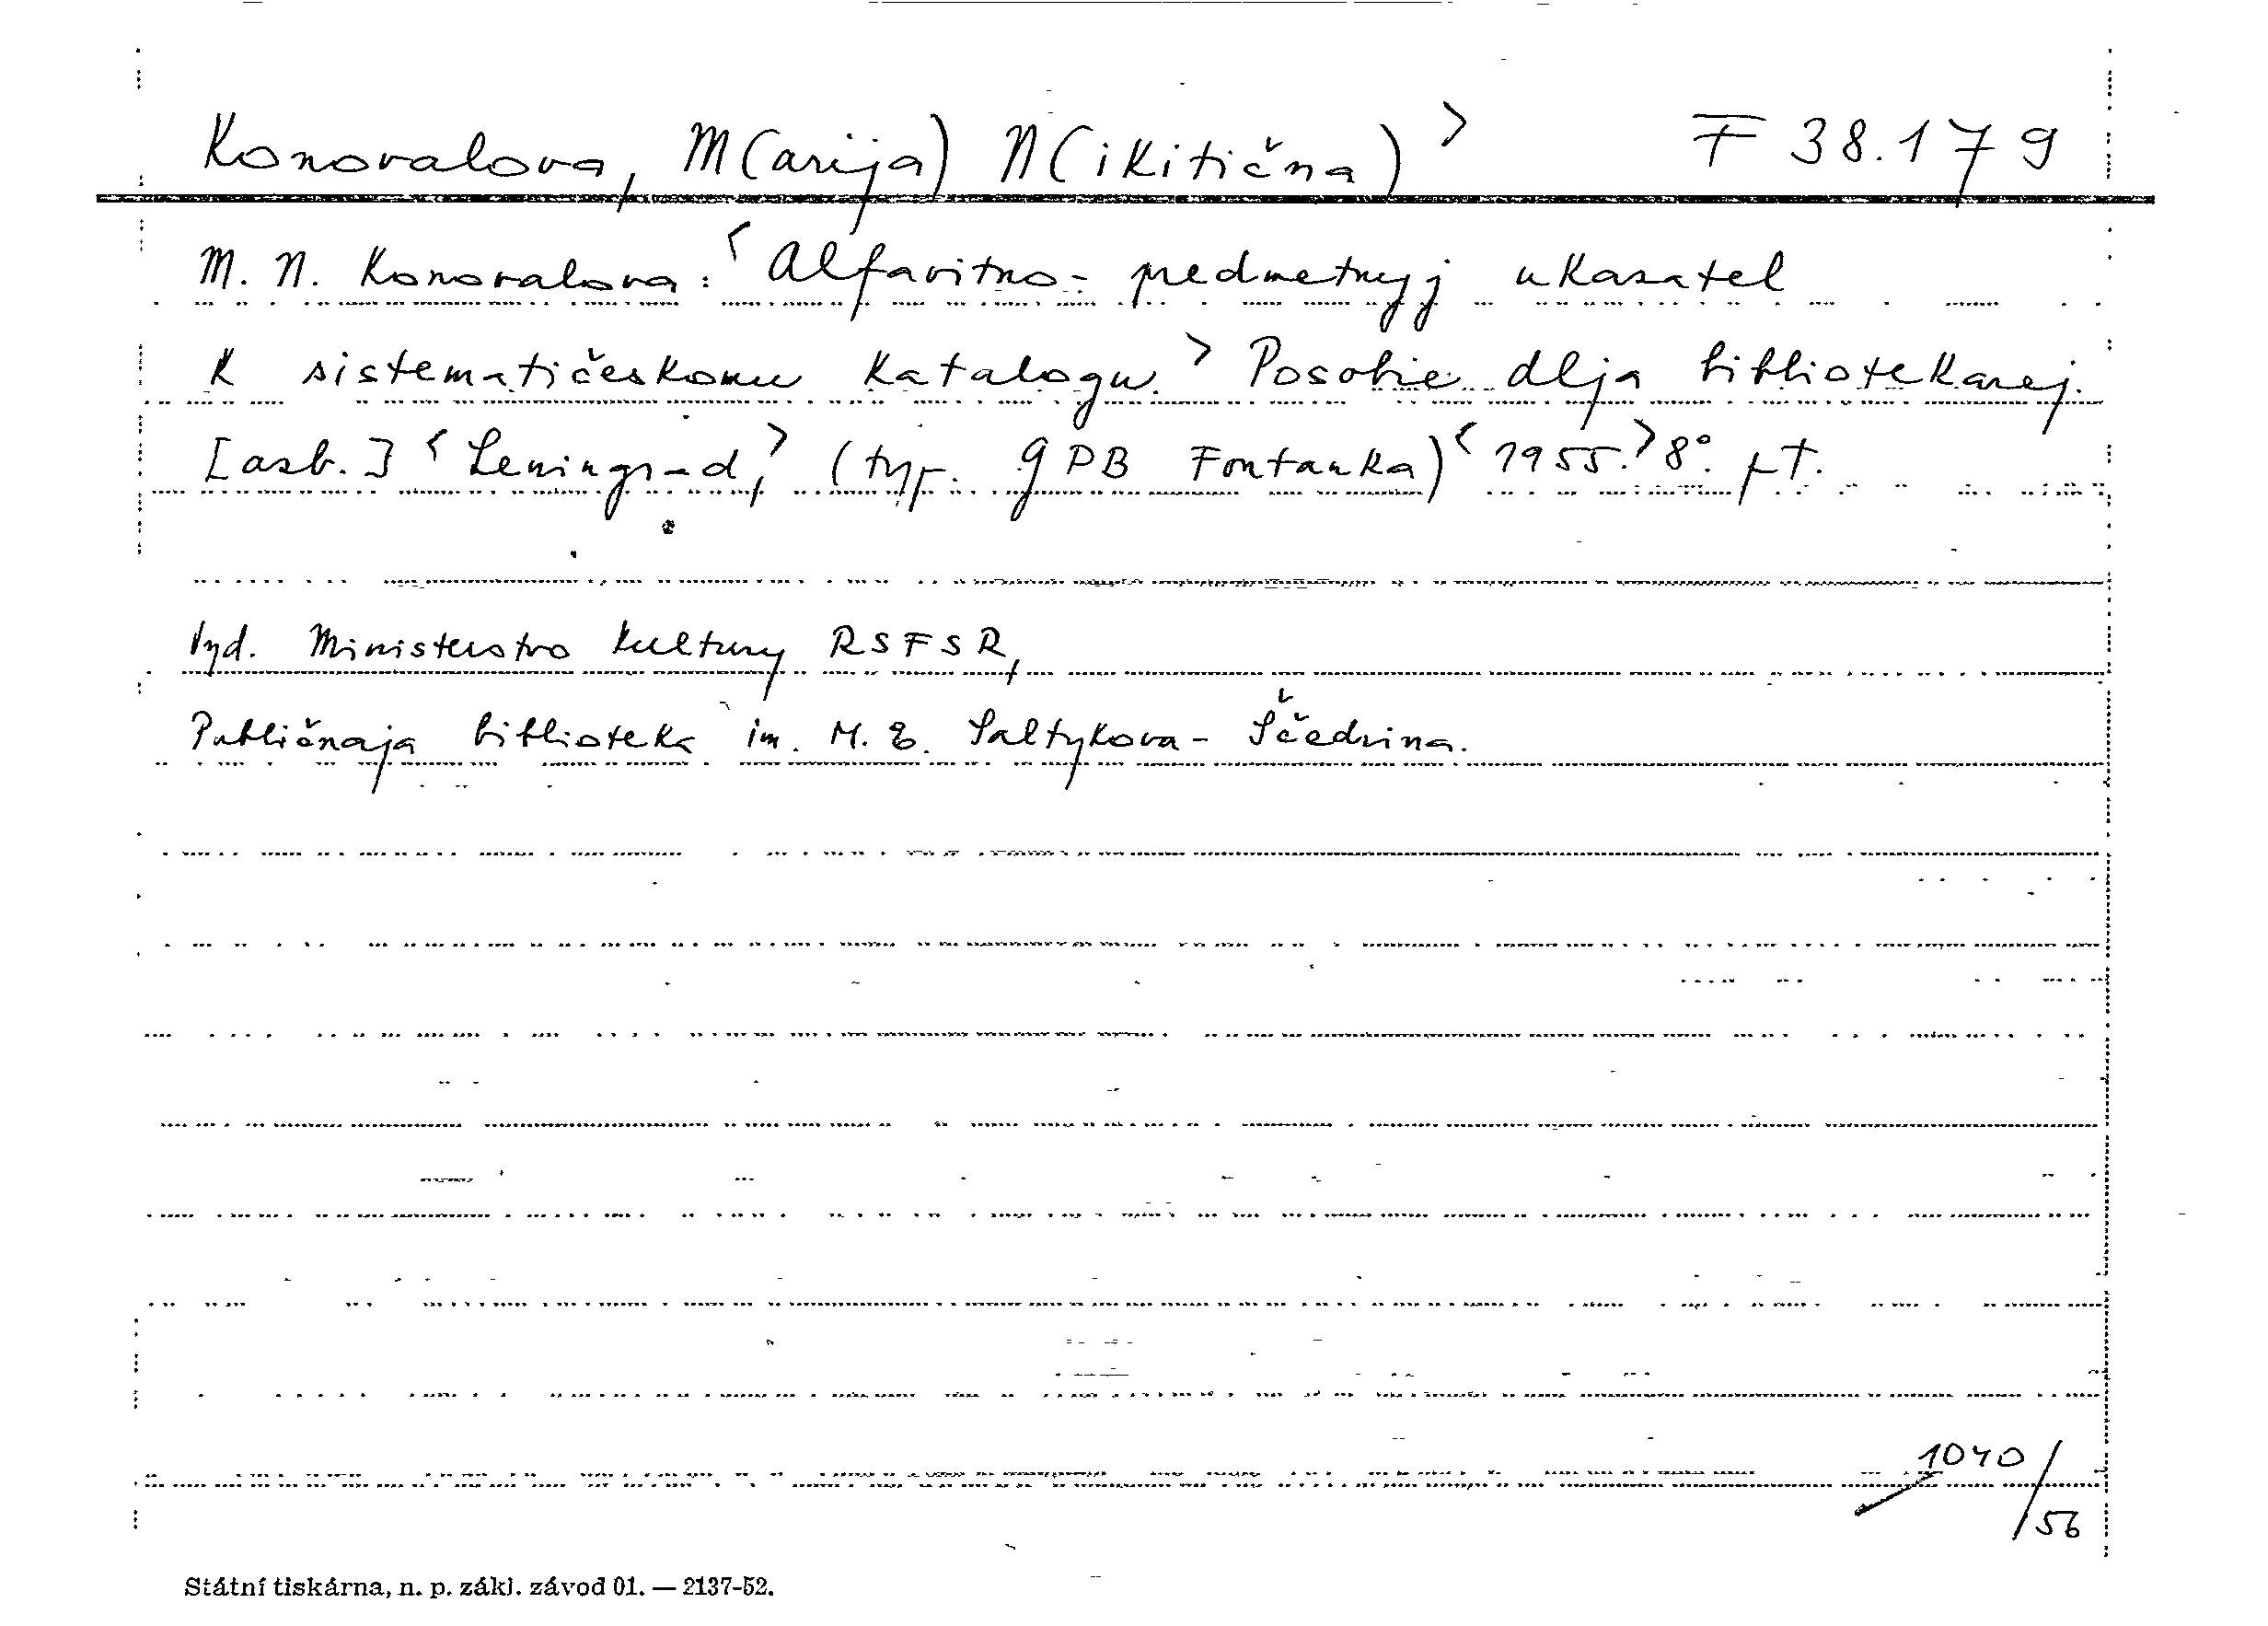 Konovalova, M(arija) N(ikitična)> F 38.179
M. N. Konovalova: <Alfavitno-predmetnyj ukazatel
k sistematičeskomu katalogu.> Posobie dlja bibliotekarej.
[azb.] <Leningrad,> (typ. GPB Fontanka) <1955.> 8°. pt.
Vyd. Ministerstvo kultury RSFSR,
Publičnaja biblioteka im. M. E. Saltykova-Ščedrina.
1040/56
Státní tiskárna, n. p. zákl. závod 01. — 2137-52.